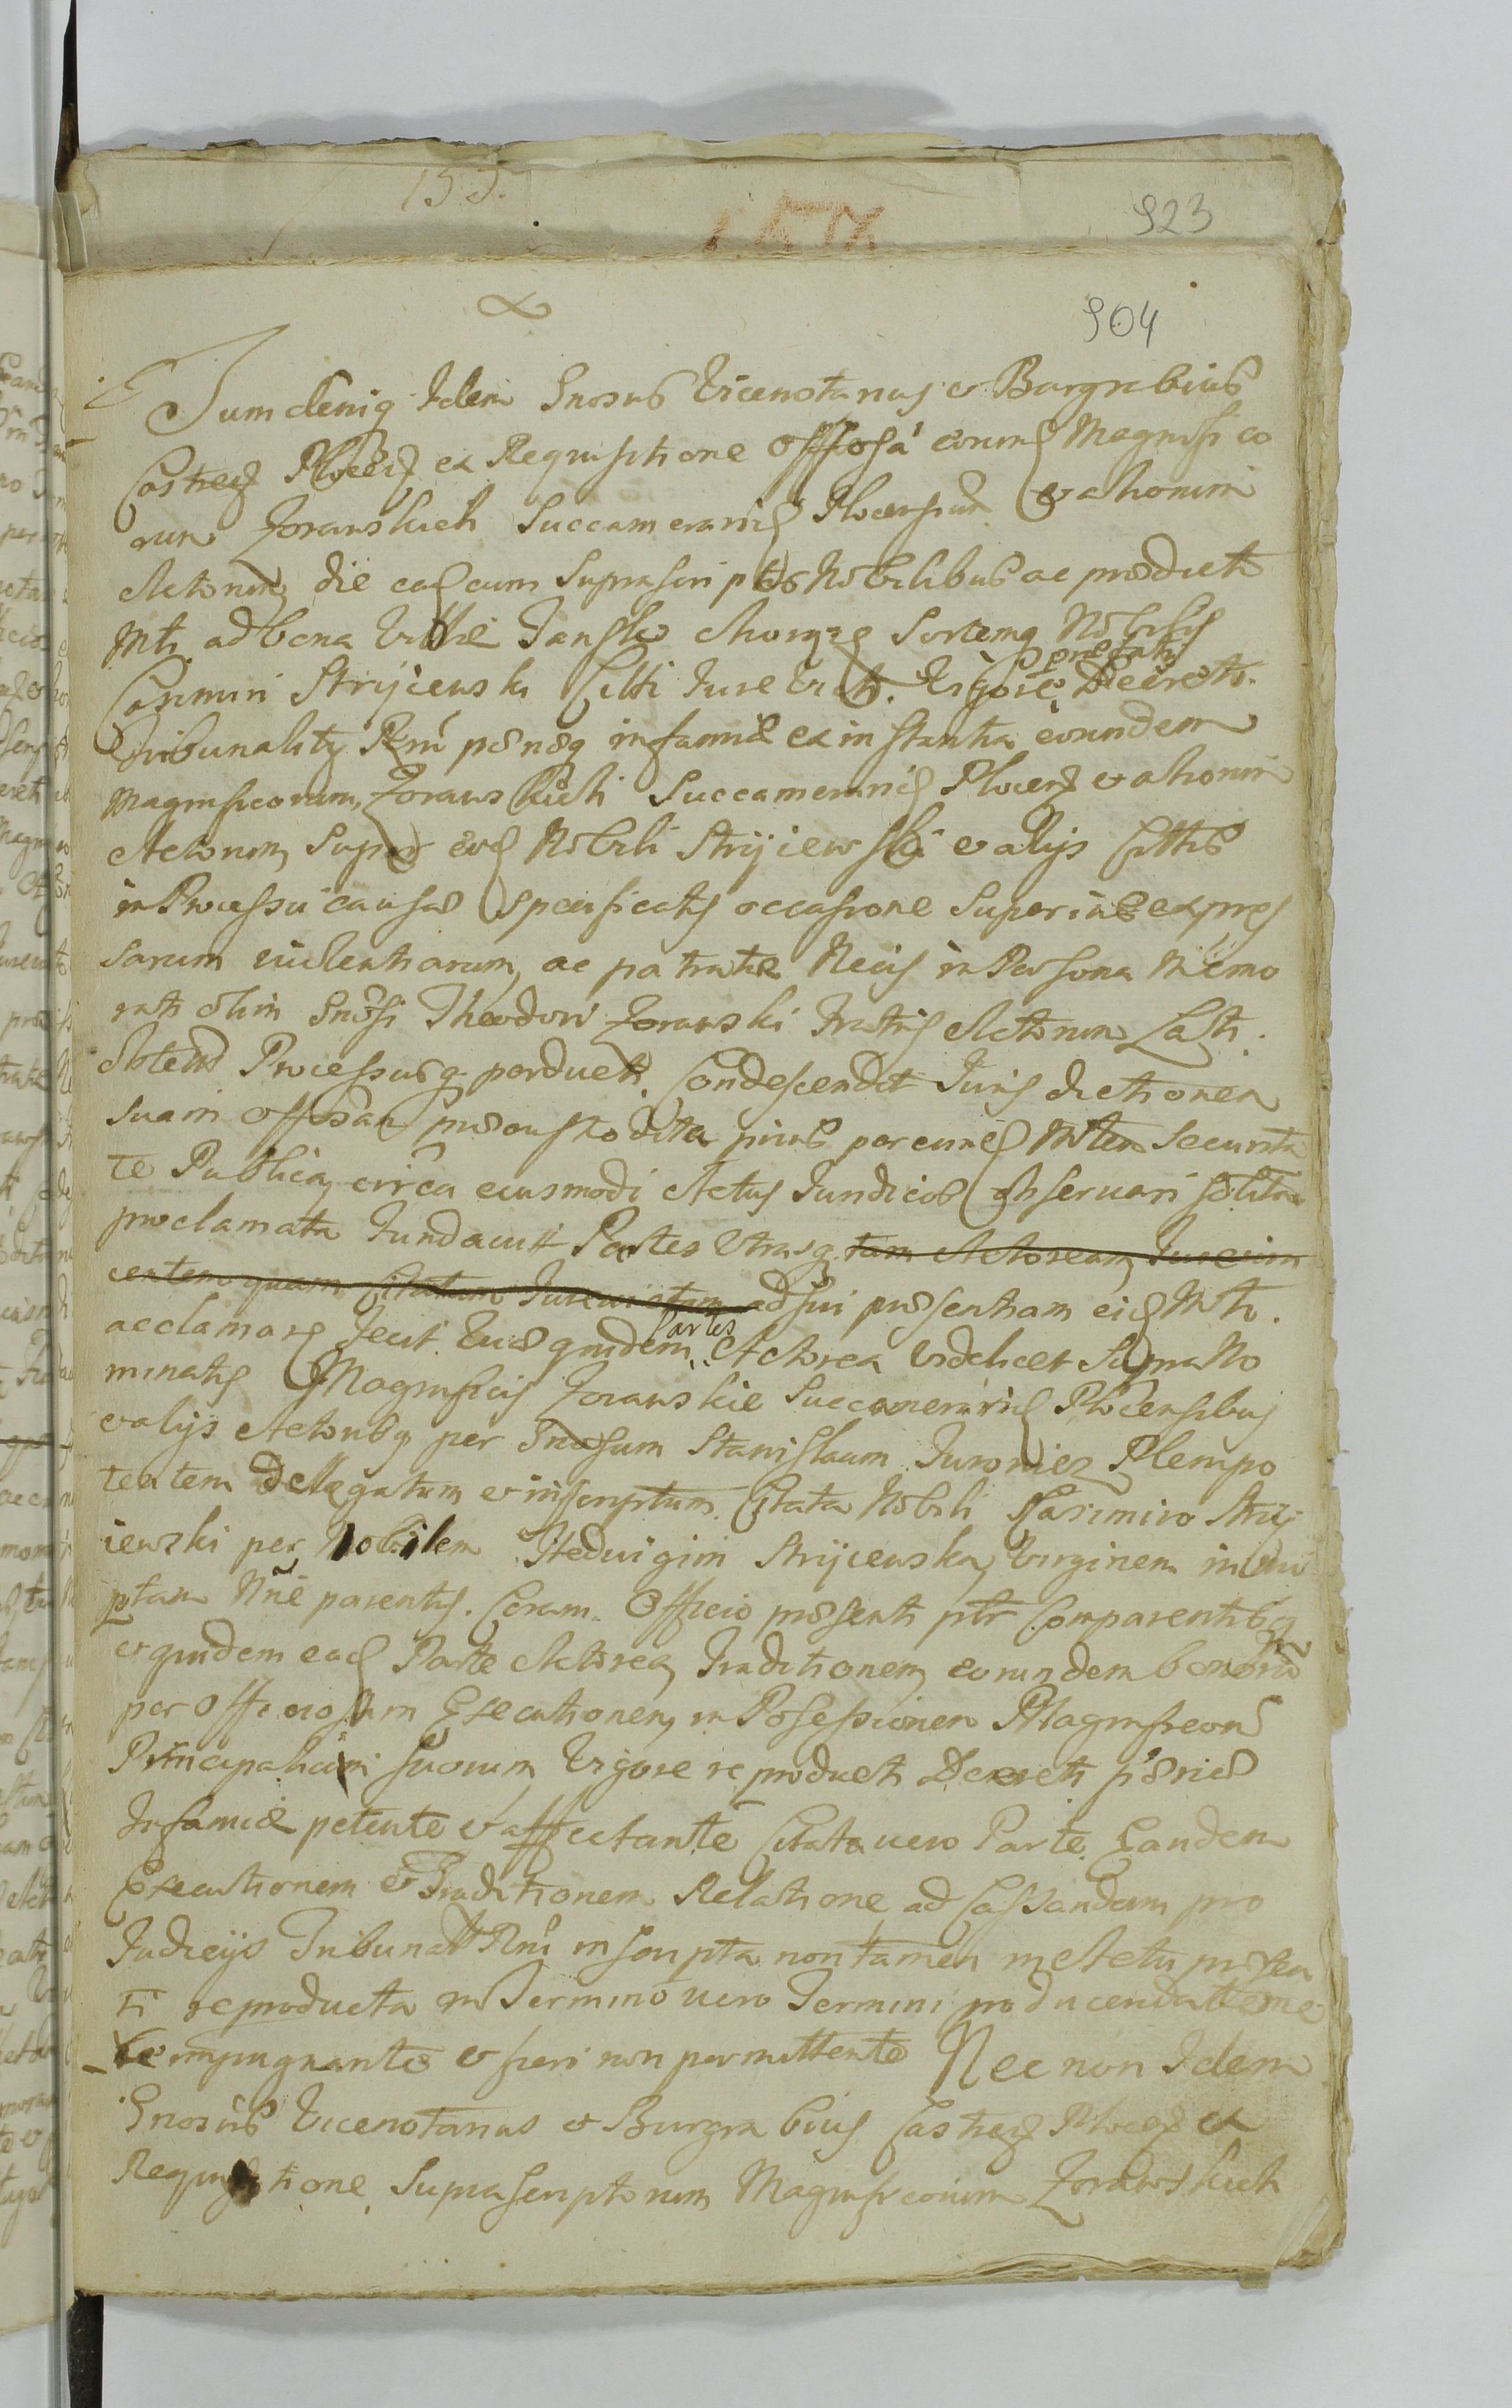 155.
923
904
Tum deniq Idem Gnosus Vicenotarius et Burgrabius
Castreñ Plocen ex Requisitione Offiosa eorund Magnifico
rum Zorawskich Succamerarid Plocensium et aliorum
Actorum die ead cum Suprascriptis Nobilibus ac product
Mti ad bona Villæ Jansko Sortemq Nobilis
Casimiri Stryiewski Citti Jure Vict. Vigore præfatis Decreti
Tribunalitij Rni pœnæq infamiæ ex instantia eorundem
Magnificorum, Zorawskich Succamerarid Plocen et aliorum
Actorum, Supra eod Nobili Stryiewski et alijs Cittis
in Processu causæ Specificatis occasione Superius expres
sarum violentiarum, ac patratæ Necis in Persona Memo
rati olim Gnosi Theodori Zorawski Fratris Actorum Lati.
Obtent Processusq perducti. Condescendit Jurisdictionem
suam offiosam præcustodita prius per eund Mtem Securita
te Publica, circa eiusmodi Actus Juridicos observari solita
proclamata fundavit Partes Utrasq tam Actoream Jurevin
centem quam Citatam Jurevictam ad sui præsentiam eid Mti.
acclamare fecit. Quæquidem Partes Actorea videlicet Supra No
minatis Magnificis Zorawskie Succamerarid Plocensibus
et alijs Actoribq per Gnosum Stanislaum Plenipo
tentem Delegatum et inscriptum. Citata Nobili Casimiro Stryi
iewski per Nobilem Hedvigim Stryiewska, Virginem innu
ptam Nne parentis. Coram Officio præsenti ptr Comparentibq
et quidem ead Parte Actorea, Traditionem eorundem bonorum
per Officiosam Executionem, in Posessionem Magnificorū
Principalium suorum Vigore reproducti Decreti pœnæ
Infamiæ petente et affectante Citata vero Parte Eandem
Executionem et Traditionem Relatione ad Cassandum pro
Judicijs Tribunali Rni inscripta non tamen in Actu præsen
ti reproducta in Termino vero Termini producenda teme
re impugnante et fieri non permittente Nec non Idem
Gnosus Vicenotarius et Burgrabius Castren Plocen ex
Requisitione Suprascriptorum Magnificorum Zorawskich